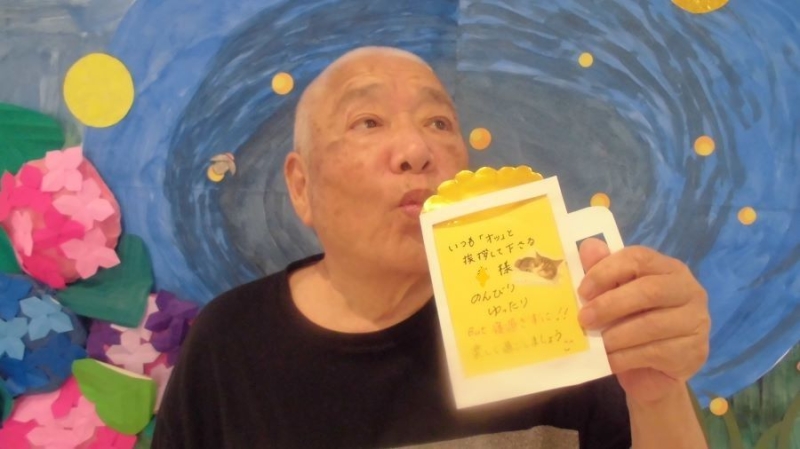 いつも「オッ」と
挨拶して下さる
様
のんびり
ゆったり
But 健康第一に!!
楽しく過ごしましょう